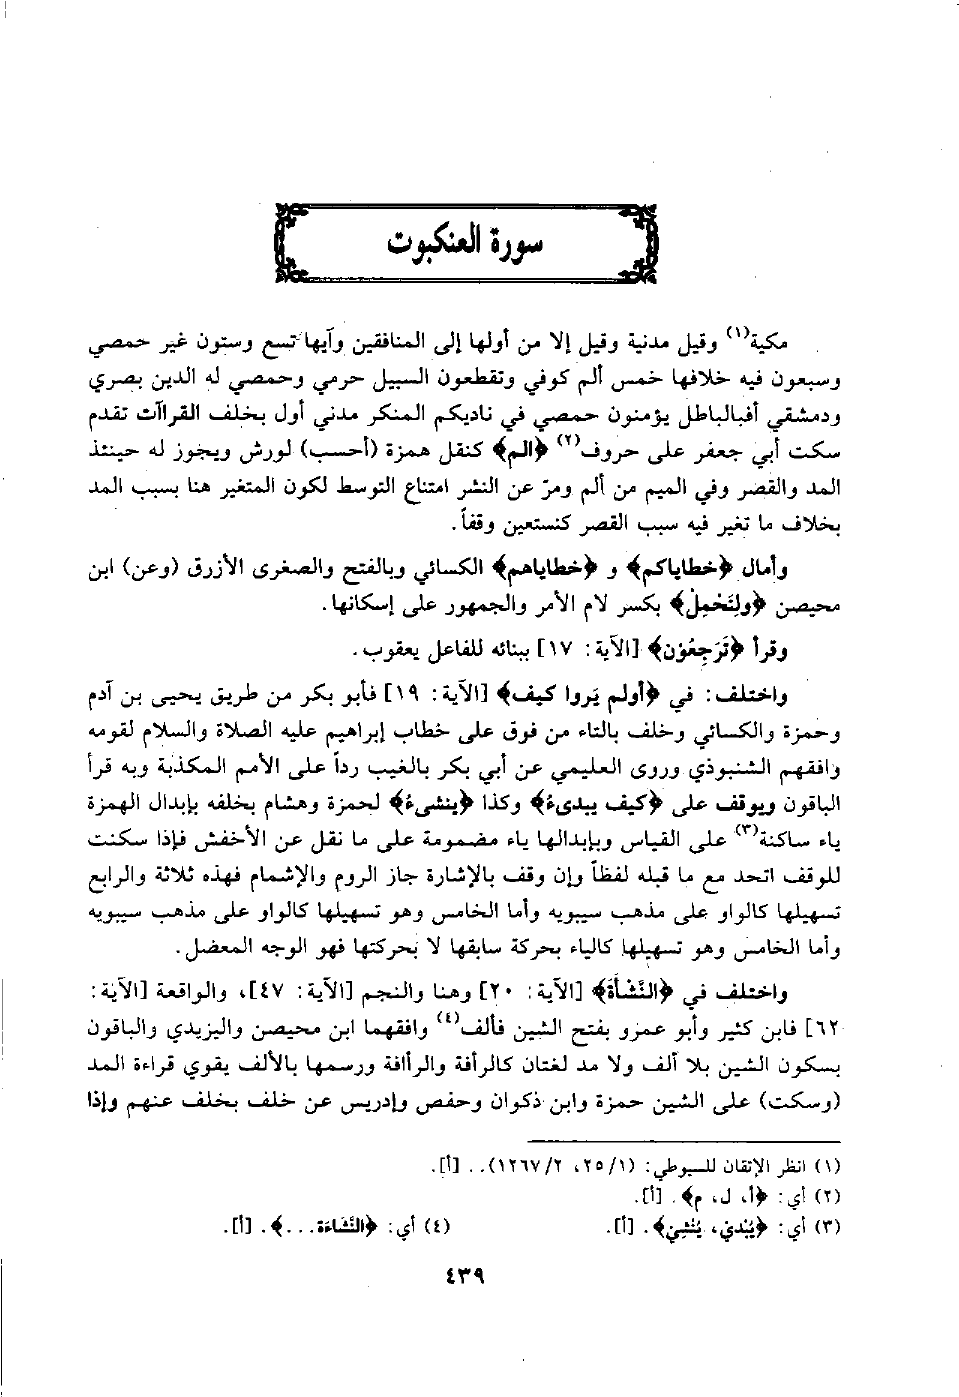 سورة العنكبوت
مكية(١) وقيل مدنية وقيل إلا من أولها إلى المنافقين وآيها تسع وستون غير حمصي
وسبعون فيه خلافها خمس ألم كوفي وتقطعون السبيل حرمي وحمصي له الدين بصري
ودمشقي أفبالباطل يؤمنون حمصي في ناديكم المنكر مدني أول بخلف القراآت تقدم
سكت أبي جعفر على حروف(٢) ﴿الم﴾ كنقل همزة (أحسب) لورش ويجوز له حينئذ
المد والقصر وفي الميم من ألم ومرّ عن النشر امتناع التوسط لكون المتغير هنا بسبب المد
بخلاف ما تغير فيه سبب القصر كنستعين وقفاً.
وأمال ﴿خطاياكم﴾ و ﴿خطاياهم﴾ الكسائي وبالفتح والصغرى الأزرق (وعن) ابن
محيصن ﴿ولِنَحْمِلْ﴾ بكسر لام الأمر والجمهور على إسكانها.
وقرأ ﴿تَرْجِعُوْن﴾ [الآية: ١٧] ببنائه للفاعل يعقوب.
واختلف: في ﴿أولم يَروا كيف﴾ [الآية: ١٩] فأبو بكر من طريق يحيى بن آدم
وحمزة والكسائي وخلف بالتاء من فوق على خطاب إبراهيم عليه الصلاة والسلام لقومه
وافقهم الشنبوذي وروى العليمي عن أبي بكر بالغيب رداً على الأمم المكذبة وبه قرأ
الباقون ويوقف على ﴿كيف يبدىءُ﴾ وكذا ﴿ينشىءُ﴾ لحمزة وهشام بخلفه بإبدال الهمزة
ياء ساكنة(٣) على القياس وبإبدالها ياء مضمومة على ما نقل عن الأخفش فإذا سكنت
للوقف اتحد مع ما قبله لفظاً وإن وقف بالإشارة جاز الروم والإشمام فهذه ثلاثة والرابع
تسهيلها كالواو على مذهب سيبويه وأما الخامس وهو تسهيلها كالواو على مذهب سيبويه
وأما الخامس وهو تسهيلها كالياء بحركة سابقها لا بحركتها فهو الوجه المعضل.
واختلف في ﴿النَّشْأَة﴾ [الآية: ٢٠] وهنا والنجم [الآية: ٤٧]، والواقعة [الآية:
٦٢] فابن كثير وأبو عمرو بفتح الشين فألف(٤) وافقهما ابن محيصن واليزيدي والباقون
بسكون الشين بلا ألف ولا مد لغتان كالرأفة والرأافة ورسمها بالألف يقوي قراءة المد
(وسكت) على الشين حمزة وابن ذكوان وحفص وإدريس عن خلف بخلف عنهم وإذا
(١) انظر الإتقان للسيوطي: (٢٥/١، ١٢٦٧/٢).. [أ].
(٢) أي: ﴿أ، ل، م﴾. [أ].
(٣) أي: ﴿يُبْدِيْ، يُنْشِيْ﴾. [أ]. (٤) أي: ﴿النَّشَاءَة...﴾. [أ].
٤٣٩